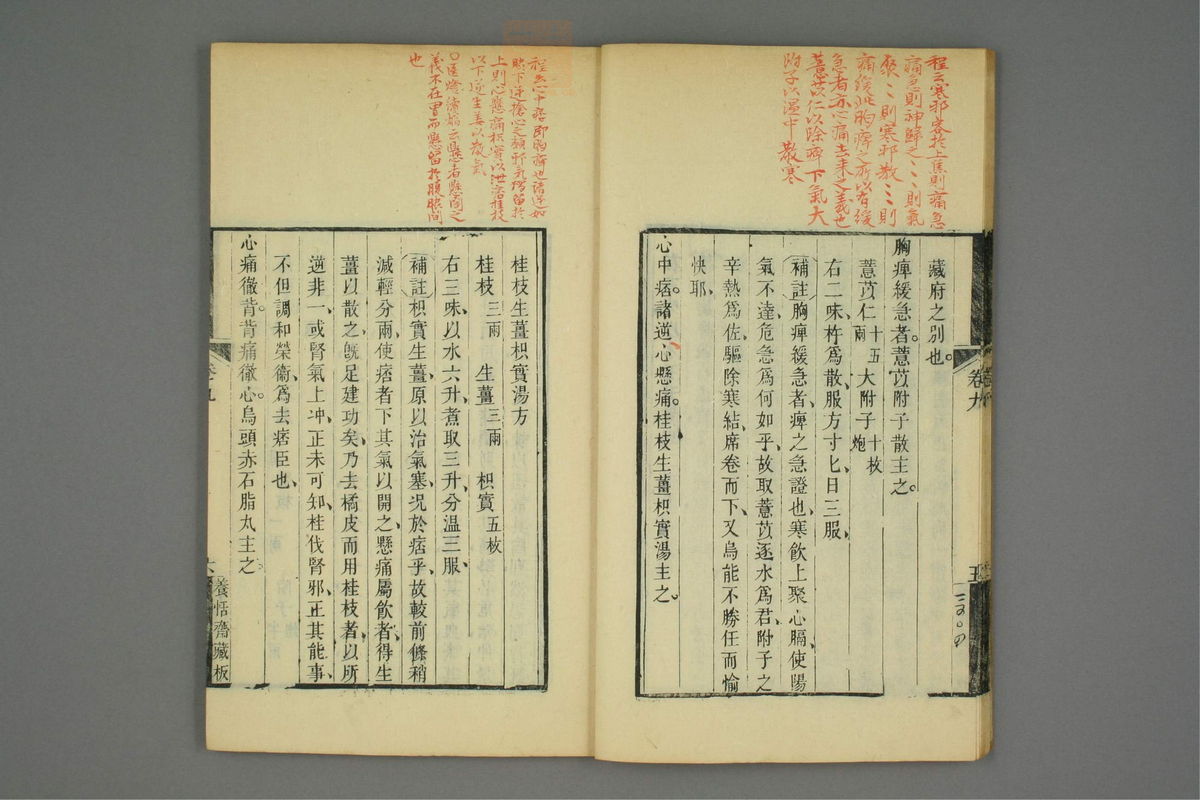 程云寒邪客於上焦則痛急
痛急則神歸之〻〻則氣
聚〻〻則寒邪散〻〻則
痛緩此胸痺之所以有緩
急者亦心痛去來之義也
薏苡仁以除痺下氣大
附子以溫中散寒
藏府之別也
胸痺緩急者薏苡附子散主之
薏苡仁十五兩 大附子十枚炮
右二味杵為散服方寸匕日三服
補註胸痺緩急者痺之急證也寒飲上聚心膈使陽
氣不達危急為何如乎故取薏苡逐水為君附子之
辛熱為佐驅除寒結席卷而下又烏能不勝任而愉
快耶
心中痞諸逆心懸痛桂枝生薑枳實湯主之
卷九
五
程云心中痞即胸痺也諸逆如
脇下逆搶心之類邪氣獨留於
上則心懸痛枳實以泄痞桂枝
以下逆生姜以散氣
義不在胃而懸留於腹脇間
也
桂枝生薑枳實湯方
桂枝三兩 生薑三兩 枳實五枚
右三味以水六升煮取三升分溫三服
補註枳實生薑原以治氣塞況於痞乎故較前條稍
減輕分兩使痞者下其氣以開之懸痛屬飲者得生
薑以散之既足建功矣乃去橘皮而用桂枝者以所
逆非一或腎氣上冲正未可知桂伐腎邪正其能事
不但調和榮衛為去痞臣也
心痛徹背背痛徹心烏頭赤石脂丸主之
卷九
六
養恬齋藏板